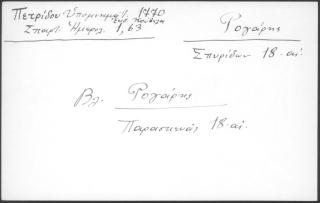 Πετρίδου Υπομνηματ. 1770
Σπαρτ. Ημερολ. 1,63
Ρογάρης
Σπυρίδων 18 αι.
Βλ. Ρογάρης
Παρασκευάς 18 αι.